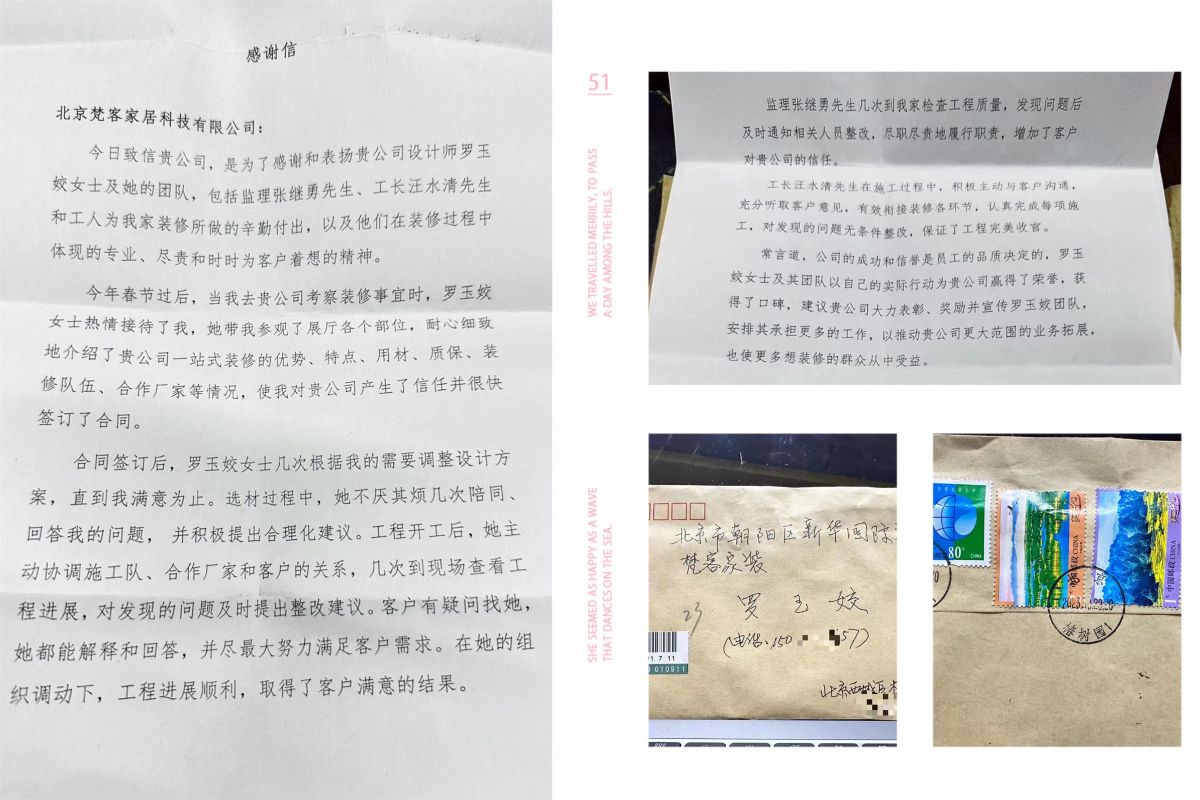 感谢信
北京梵客家居科技有限公司：
今日致信贵公司，是为了感谢和表扬贵公司设计师罗玉
姣女士及她的团队，包括监理张继勇先生、工长汪水清先生
和工人为我家装修所做的辛勤付出，以及他们在装修过程中
体现的专业、尽责和时时为客户着想的精神。
今年春节过后，当我去贵公司考察装修事宜时，罗玉姣
女士热情接待了我，她带我参观了展厅各个部位，耐心细致
地介绍了贵公司一站式装修的优势、特点、用材、质保、装
修队伍、合作厂家等情况，使我对贵公司产生了信任并很快
签订了合同。
合同签订后，罗玉姣女士几次根据我的需要调整设计方
案，直到我满意为止。选材过程中，她不厌其烦几次陪同、
回答我的问题，并积极提出合理化建议。工程开工后，她主
动协调施工队、合作厂家和客户的关系，几次到现场查看工
程进展，对发现的问题及时提出整改建议。客户有疑问找她，
她都能解释和回答，并尽最大努力满足客户需求。在她的组
织调动下，工程进展顺利，取得了客户满意的结果。
51
WE TRAVELLED MERRILY, TO PASS
A DAY AMONG THE HILLS.
SHE SEEMED AS HAPPY AS A WAVE
THAT DANCES ON THE SEA.
监理张继勇先生几次到我家检查工程质量，发现问题后
及时通知相关人员整改，尽职尽责地履行职责，增加了客户
对贵公司的信任。
工长汪水清先生在施工过程中，积极主动与客户沟通，
充分听取客户意见，有效衔接装修各环节，认真完成每项施
工，对发现的问题无条件整改，保证了工程完美收官。
常言道，公司的成功和信誉是员工的品质决定的，罗玉
姣女士及其团队以自己的实际行动为贵公司赢得了荣誉，获
得了口碑，建议贵公司大力表彰、奖励并宣传罗玉姣团队，
安排其承担更多的工作，以推动贵公司更大范围的业务拓展，
也使更多想装修的群众从中受益。
北京市朝阳区新华国际
梵客家装
23 罗玉姣
(电话:150 57)
北京西城区
91 7 11
0 010911
80
CHINA
中国邮政 CHINA
中国邮政 CHINA
1
椿树园1